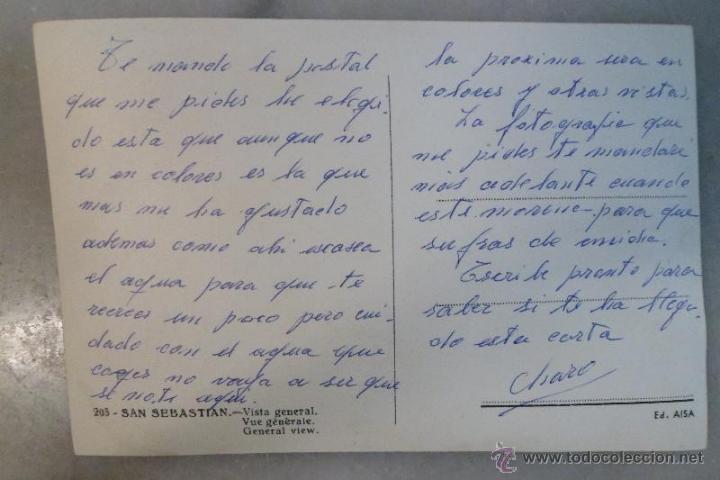 Te mando la postal
que me pides he elegi-
do esta que aunque no
es en colores es la que
mas me ha gustado
ademas como ahi escasea
el agua para que te
recrees un poco pero cui-
dado con el agua que
coges no vaya a ser que
se note aqui.
203 - SAN SEBASTIAN.—Vista general.
Vue générale.
General view.
la proxima sera en
colores y otras vistas.
La fotografia que
me pides te mandare
mas adelante cuando
este morena para que
sufras de envidia.
Escribe pronto para
saber si te ha llega-
do esta carta
Charo
Ed. AISA
© www.todocoleccion.net